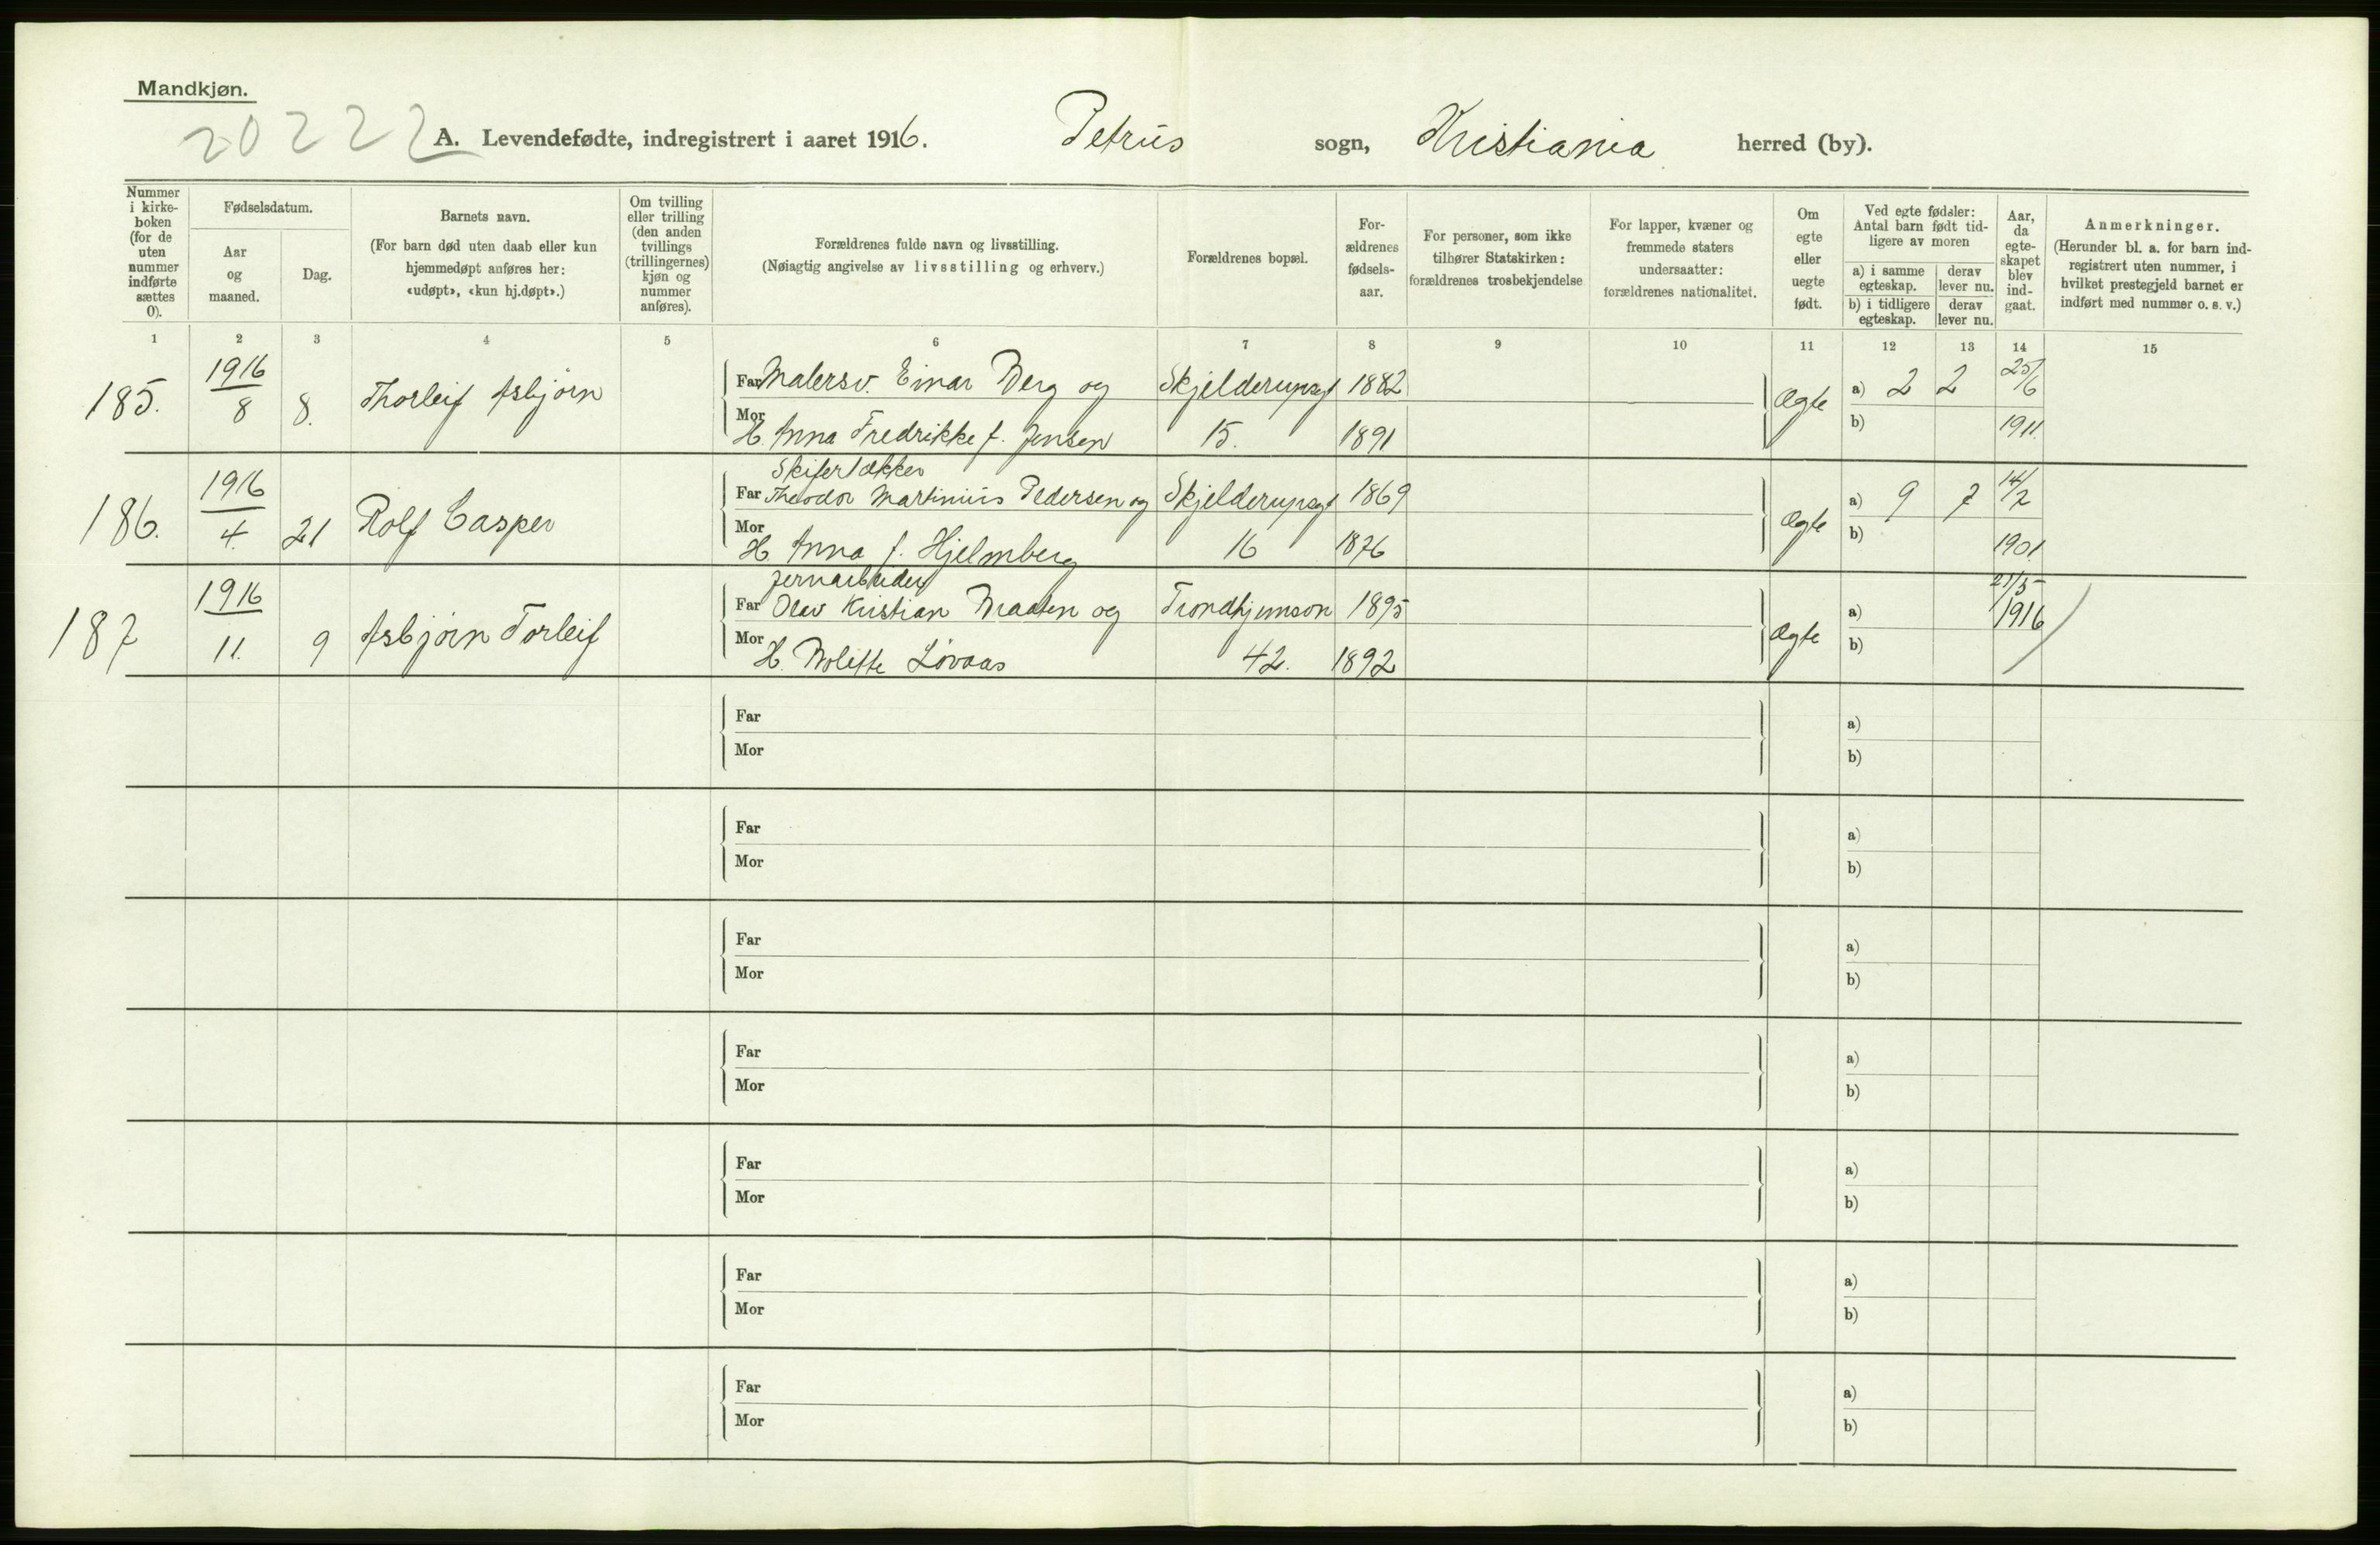 Mandkjøn.
20222
A. Levendefødte, indregistrert i aaret 1916. Petrus sogn, Kristiania herred (by).
Nummer i kirke-boken (for de uten nummer indførte sættes 0).
Fødselsdatum.
Aar og maaned.
Dag.
Barnets navn.
(For barn død uten daab eller kun hjemmedøpt anføres her: «udøpt», «kun hj.døpt».)
Om tvilling eller trilling (den anden tvillings (trillingernes) kjøn og nummer anføres).
Forældrenes fulde navn og livsstilling.
(Nøiagtig angivelse av livsstilling og erhverv.)
Forældrenes bopæl.
For-ældrenes fødsels-aar.
For personer, som ikke tilhører Statskirken: forældrenes trosbekjendelse
For lapper, kvæner og fremmede staters undersaatter: forældrenes nationalitet.
Om egte eller uegte født.
Ved egte fødsler: Antal barn født tid-ligere av moren
a) i samme egteskap.
derav lever nu.
b) i tidligere egteskap.
derav lever nu.
Aar, da egte-skapet blev ind-gaat.
Anmerkninger.
(Herunder bl. a. for barn ind-registrert uten nummer, i hvilket prestegjeld barnet er indført med nummer o. s. v.)
1 2 3 4 5 6 7 8 9 10 11 12 13 14 15
185. 1916 8 8. Thorleif Asbjørn
Far Malersv. Einar Berg og Skjelderupsgt 1882
Mor H. Anna Fredrikke f. Jensen 15. 1891
Ægte a) 2 2 25/6
b) 1911.
186. 1916 4. 21 Rolf Casper
Skifertækker
Far Theodor Martinius Pedersen og Skjelderupsgt 1869
Mor H. Anna f. Hjelmberg 16 1876
Ægte a) 9 7 14/2
b) 1901
187 1916 11. 9 Asbjørn Torleif
Jernarbeider
Far Olav Kristian Braaten og Trondhjemsvn 1895
Mor H. Lövaas 42. 1892
Ægte a) 21/5 1916
b)
Far a)
Mor b)
Far a)
Mor b)
Far a)
Mor b)
Far a)
Mor b)
Far a)
Mor b)
Far a)
Mor b)
Far a)
Mor b)